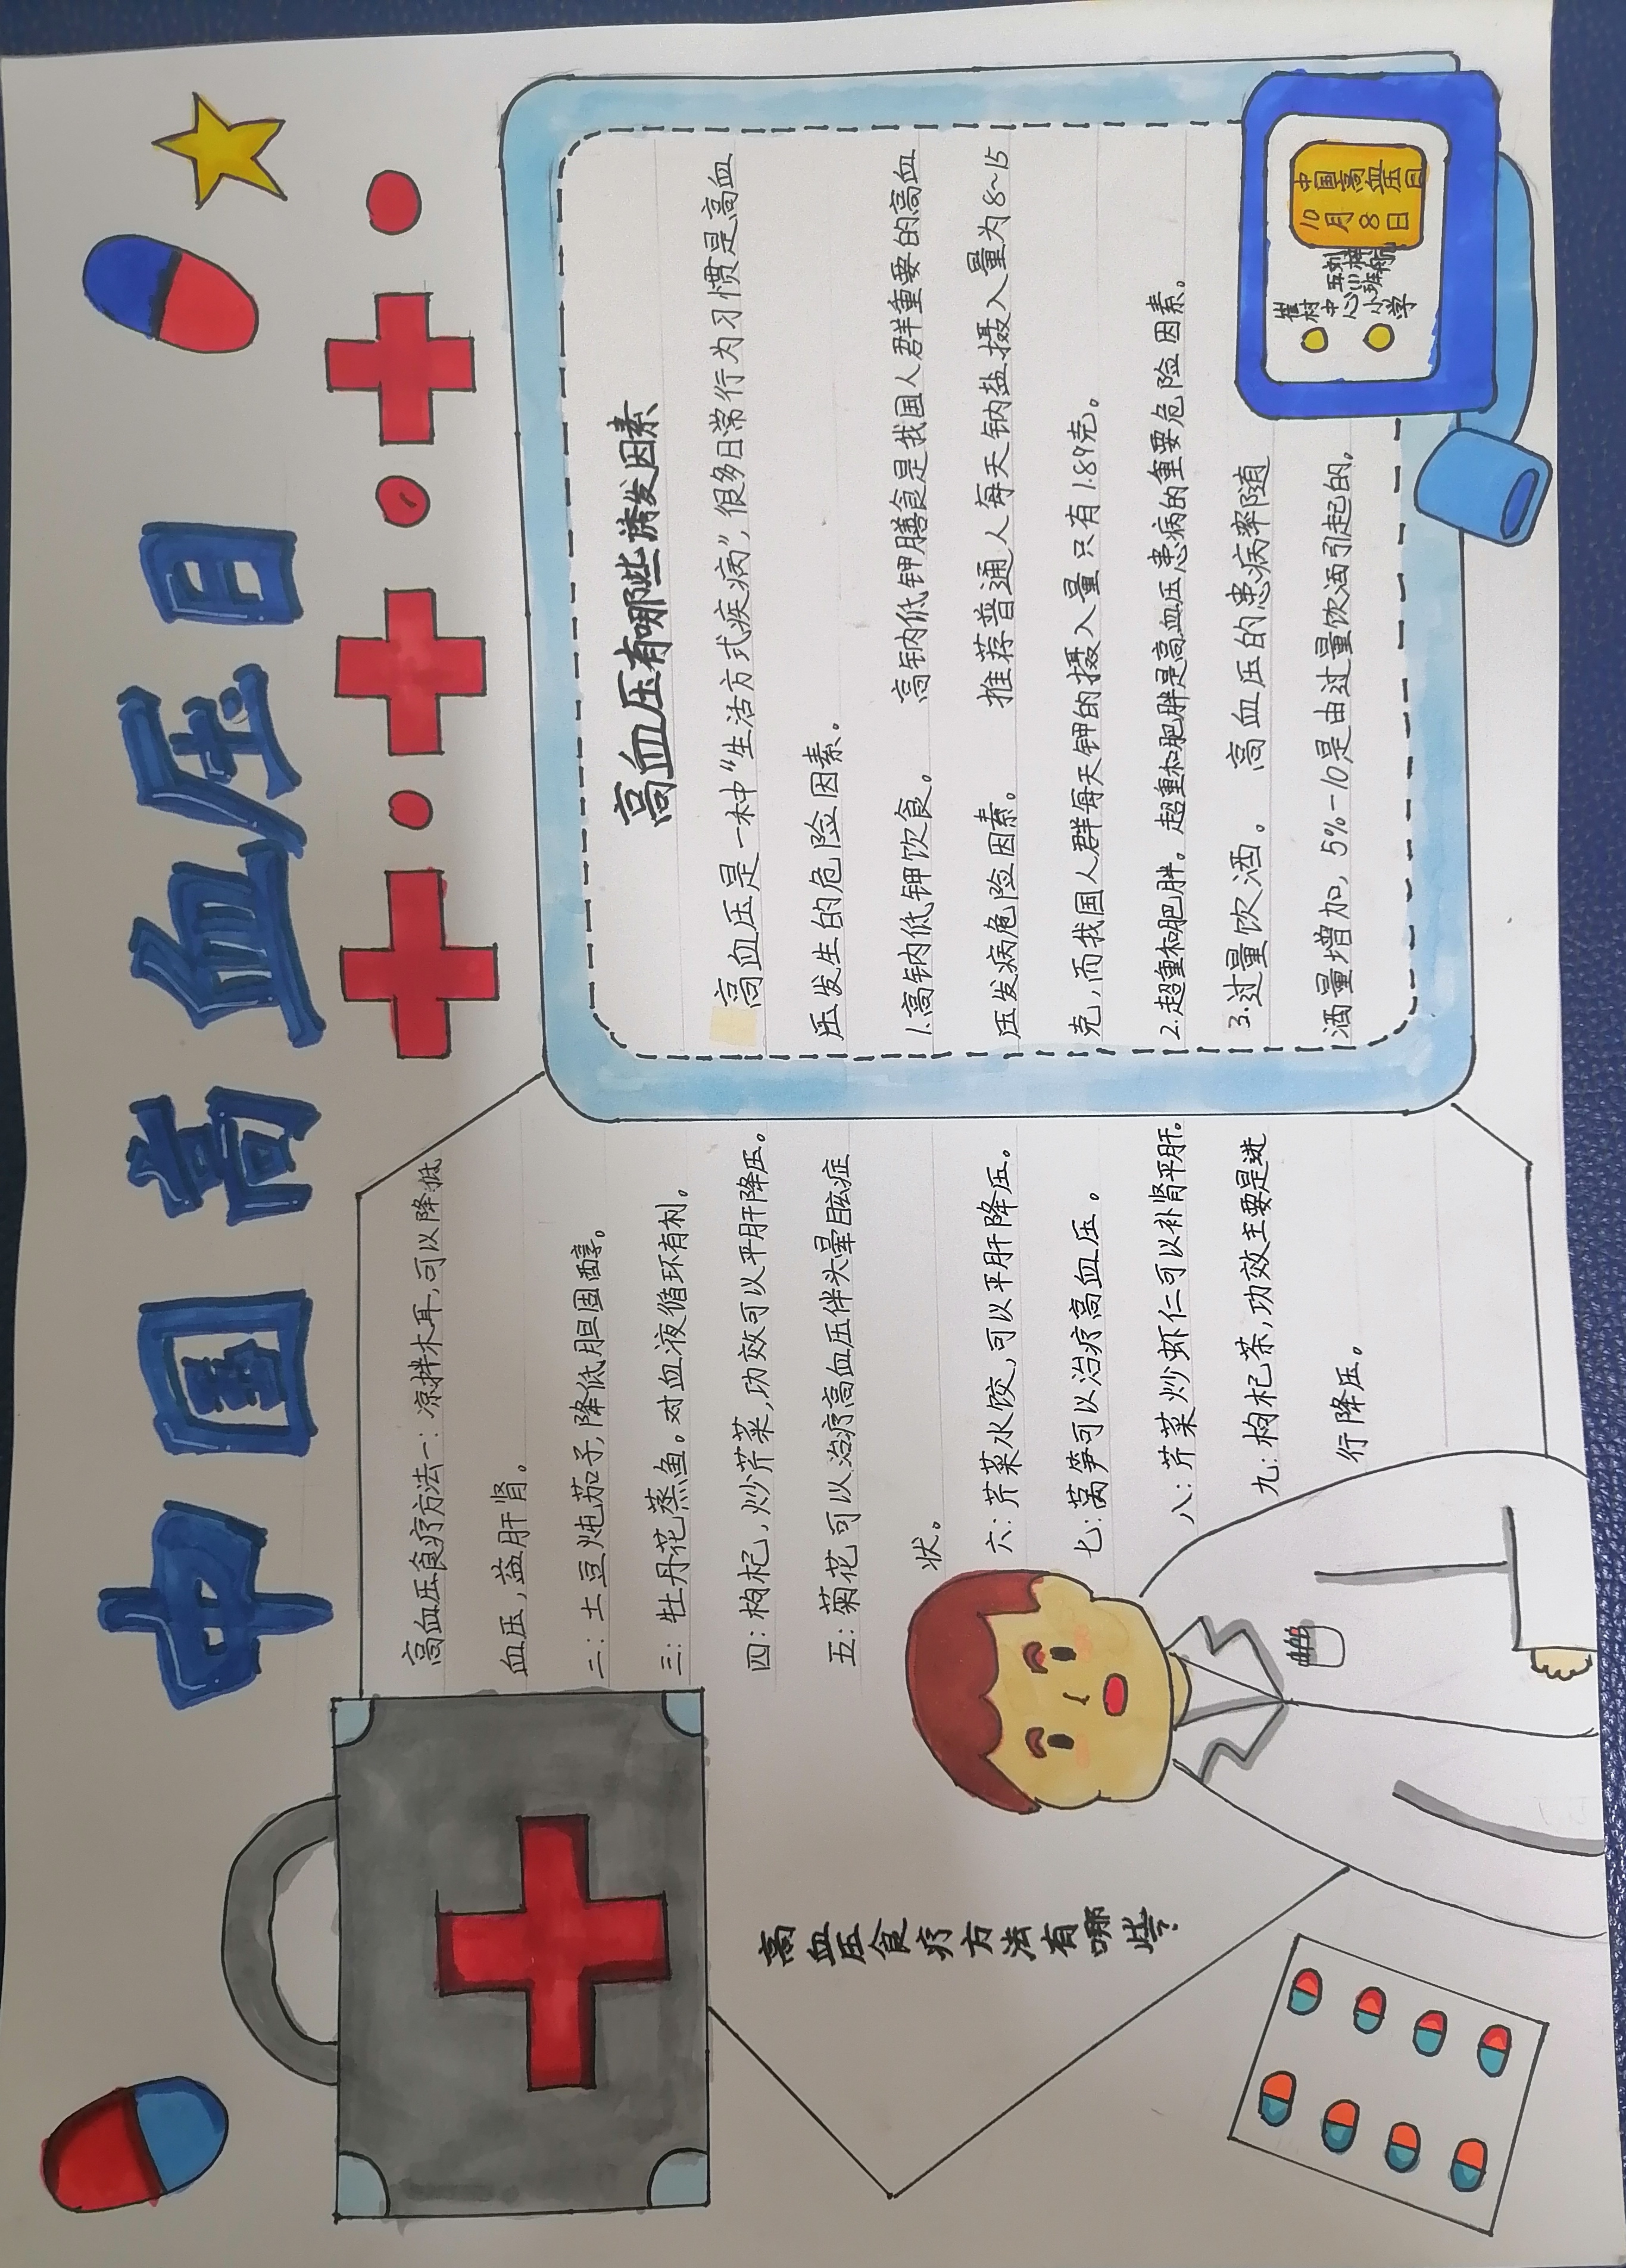 中国高血压日
高血压食疗方法一：凉拌木耳，可以降低
血压，益肝肾。
二：土豆炖茄子，降低胆固醇。
三：牡丹花蒸鱼。对血液循环有利。
四：枸杞，炒芹菜，功效可以平肝降压。
五：菊花可以治疗高血压伴头晕眩症
状。
六：芹菜水饺，可以平肝降压。
七：莴笋可以治疗高血压。
八：芹菜炒虾仁可以补肾平肝。
九：枸杞茶，功效主要是进
行降压。
高血压食疗方法有哪些？
高血压有哪些诱发因素
高血压是一种“生活方式疾病”，很多日常行为习惯是高血
压发生的危险因素。
1.高钠内低钾饮食。 高钠低钾膳食是我国人群重要的高血
压发病危险因素。 推荐普通人每天钠盐摄入量为8~15
克，而我国人群每天钾的摄入量只有1.89克。
2.超重和肥胖。超重和肥胖是高血压患病的重要危险因素。
3.过量饮酒。 高血压的患病率随
酒量增加，5%-10是由过量饮酒引起的。
中国高血压日
10月8日
崔村
中心
小学